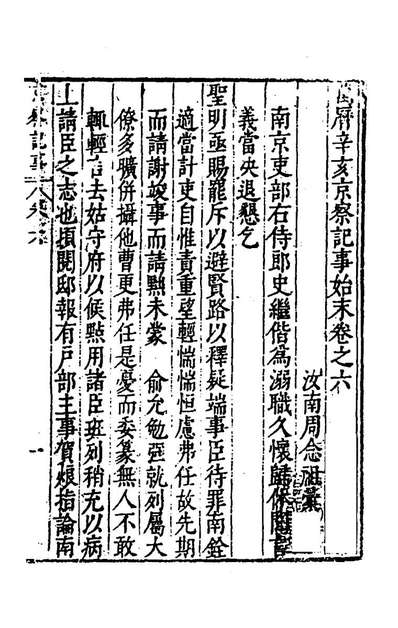 萬曆辛亥京察記事始末卷之六
汝南周念祖彙
南京吏部右侍郎史繼偕為溺職久懷歸
義當央退懇乞
聖明亟賜罷斥以避賢路以釋疑端事臣待罪南銓
適當計吏自惟責重望輕惴惴恒慮弗任故先期
而請謝竣事而請黜未蒙 俞允勉强就列屬大
僚多曠併攝他曹更弗任是憂而委篆無人不敢
輒輕言去姑守府以候點用諸臣班列稍充以病
上請臣之志也頃閱邸報有戸部主事賀烺指論南
京察記事 卷六 一